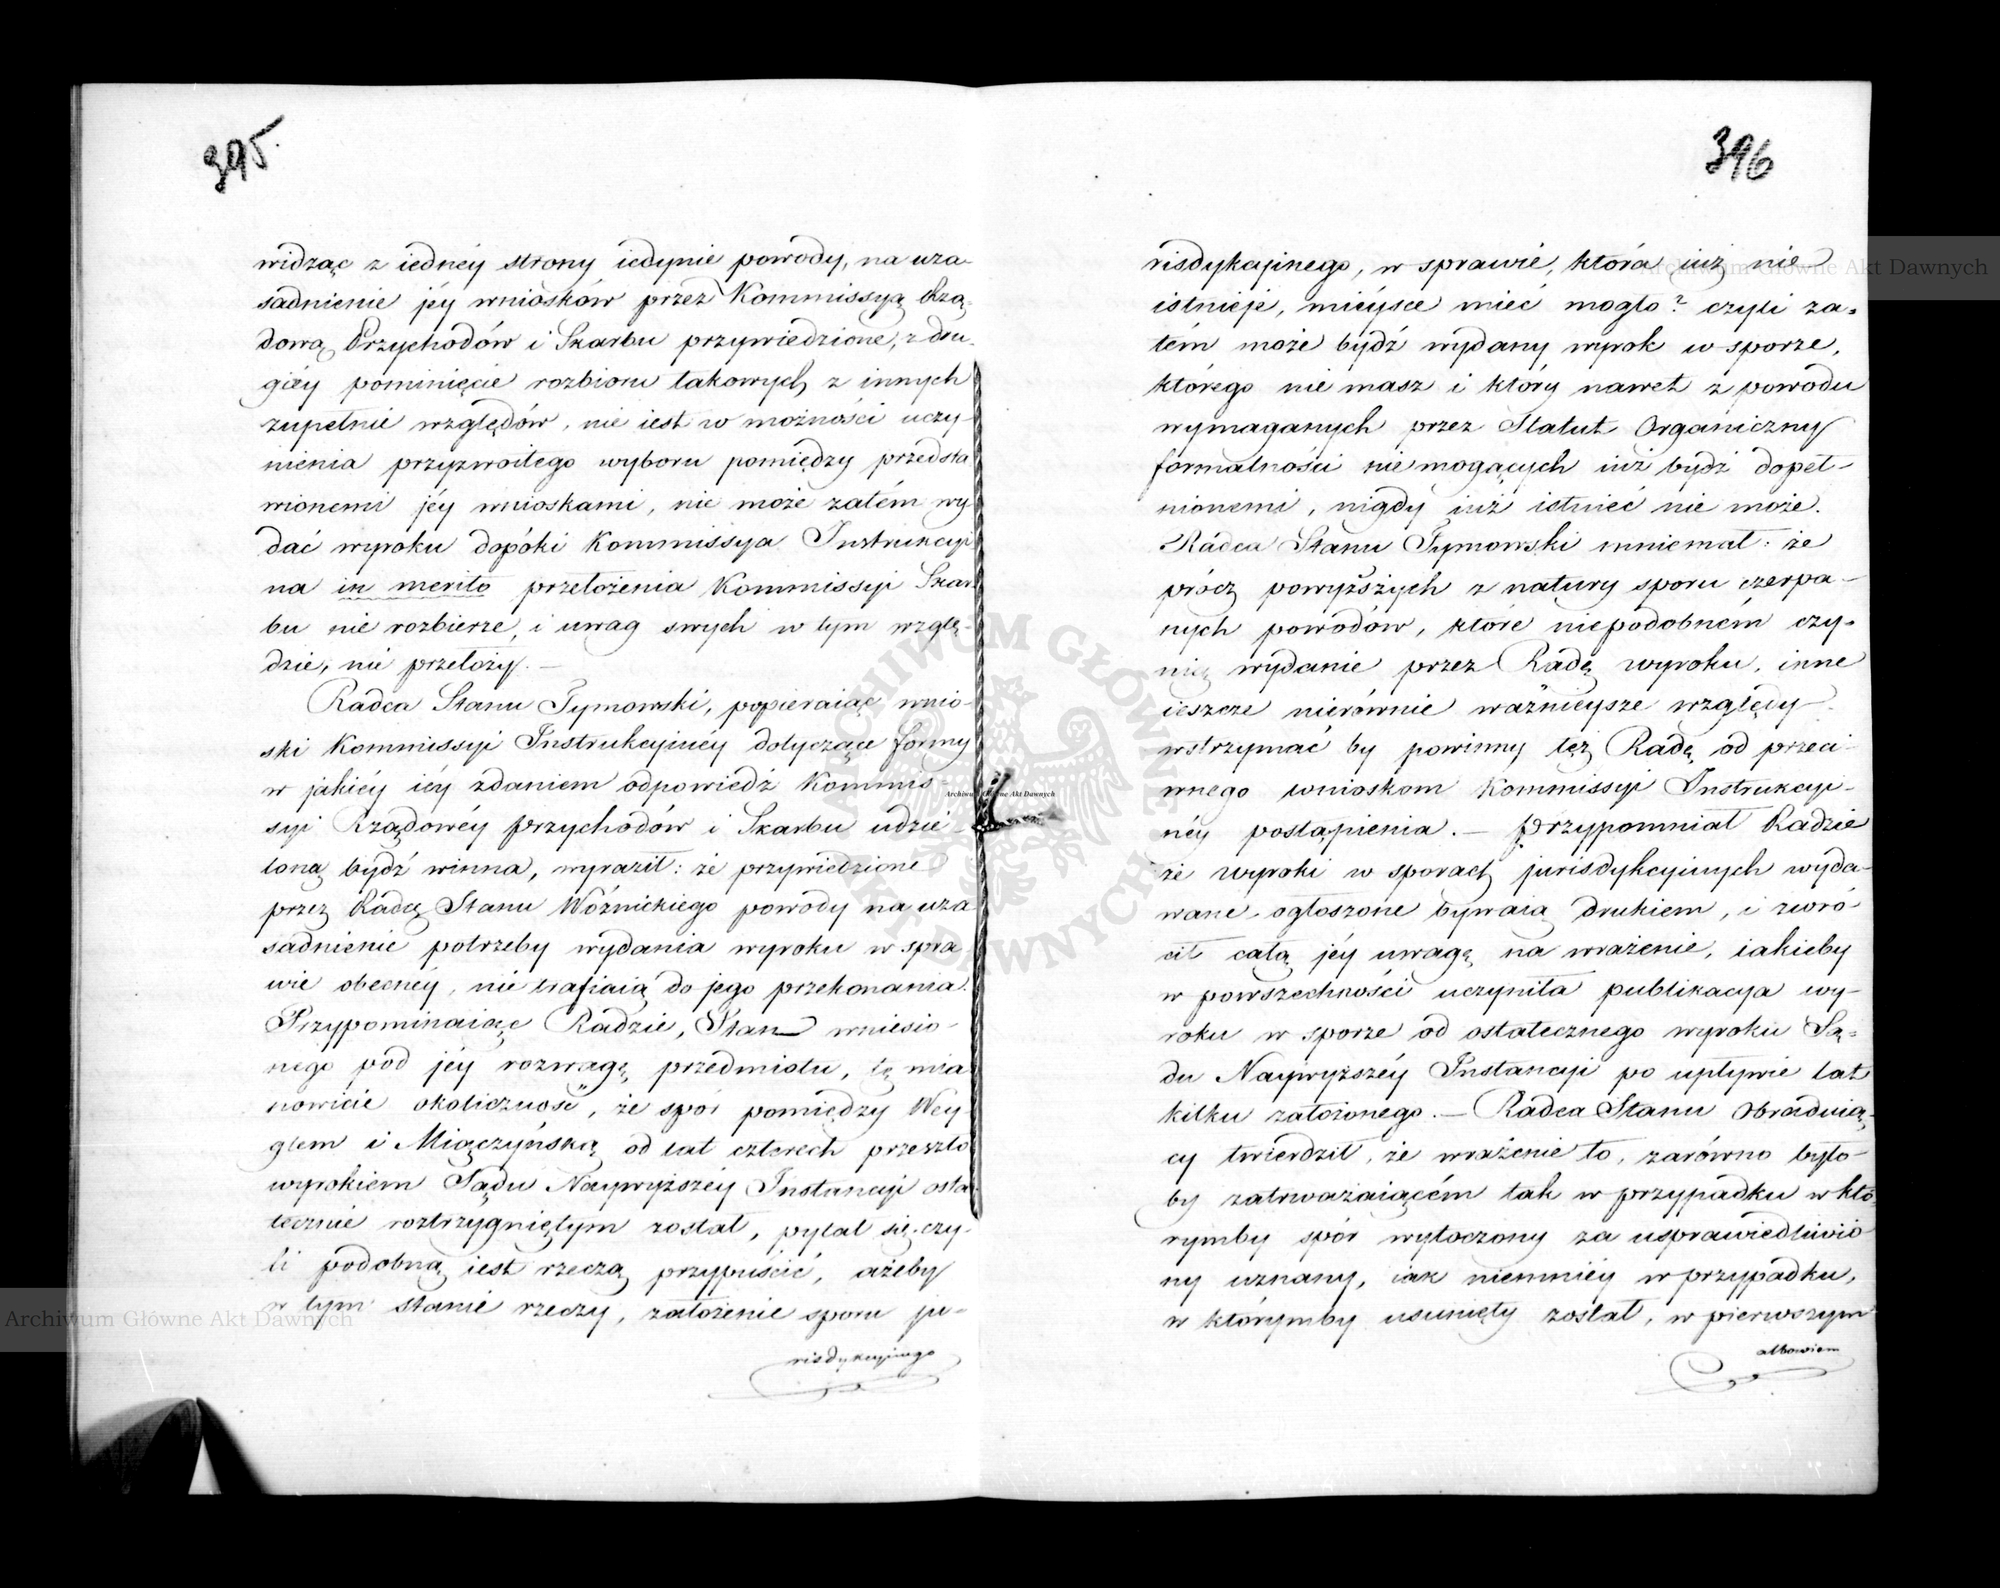 395.
widząc z iednéy strony iedynie powody, na uza-
sadnienie jéy wniosków przez Kommissyą Rzą-
dową Przychodów i Skarbu przywiedzione, z dru-
giéy pominięcie rozbioru takowych z innych
zupełnie względów, nie iest w możności uczy-
nienia przyzwoitego wyboru pomiędzy przedsta
wionemi jéy wnioskami, nie może zatém wy
dać wyroku dopóki Kommissya Instrukcyi
na in merito przełożenia Kommissyi Skar
bu nie rozbierze, i uwag swych w tym wzglę-
dzie, nie przełoży. —
Radca Stanu Tymowski, popieraiąc wnio-
ski Kommissyi Instrukcyinéy dotyczące formy
w jakiéy iéy zdaniem odpowiedź Kommis-
syi Rządowéy Przychodów i Skarbu udzie-
loną bydź winna, wyraził: że przywiedzione
przez Radcę Stanu Wóźnickiego powody na uza
sadnienie potrzeby wydania wyroku w spra
wie obecnéy, nie trafiaią do jego przekonania.
Przypominaiąc Radzie, Stan wniesio-
nego pod jéy rozwagę przedmiotu, tę mia
nowicie okoliczność, że spór pomiędzy Wey-
glem i Miączyńską od lat czterech przeszło
wyrokiem Sądu Naywyższéy Instancyi osta
tecznie roztrzygniętym został, pytał się czy-
li podobną iest rzeczą przypuścić, ażeby
w tym stanie rzeczy, założenie sporu ju-
risdykcyinego
396
risdykcyinego, w sprawie, która iuż nie
istnieje, mieysce mieć mogło? czyli za-
tém może bydź wydany wyrok w sporze,
którego nie masz i który nawet z powodu
wymaganych przez Statut Organiczny
formalności nie mogących iuż bydź dopeł-
nionemi, nigdy iuż istnieć nie może.
Radca Stanu Tymowski mniemał: że
prócz powyższych z natury sporu czerpa-
nych powodów, które niepodobném czy-
nią wydanie przez Radę wyroku, inne
ieszcze nierównie ważnieysze względy
wstrzymać by powinny też Radę od przeci-
wnego wnioskom Kommissyi Instrukcyi-
néy postąpienia. — Przypomniał Radzie
że wyroki w sporach jurisdykcyinych wyda-
wane, ogłoszone bywaią drukiem, i zwró-
cił całą jéy uwagę na wrażenie, iakieby
w powszechności uczyniła publikacya wy-
roku w sporze od ostatecznego wyroku Są-
du Naywyższéy Instancyi po upływie lat
kilku założonego. — Radca Stanu Obraduią-
cy twierdził, że wrażenie to, zarówno było-
by zatrważaiącém tak w przypadku w któ
rymby spór wytoczony za usprawiedliwio
ny uznany, iak niemniéy w przypadku,
w którymby usunięty został, w pierwszym
albowiem
Archiwum Główne Akt Dawnych
Archiwum Główne Akt Dawnych
Archiwum Główne Akt Dawnych
ARCHIWUM GŁÓWNE AKT DAWNYCH